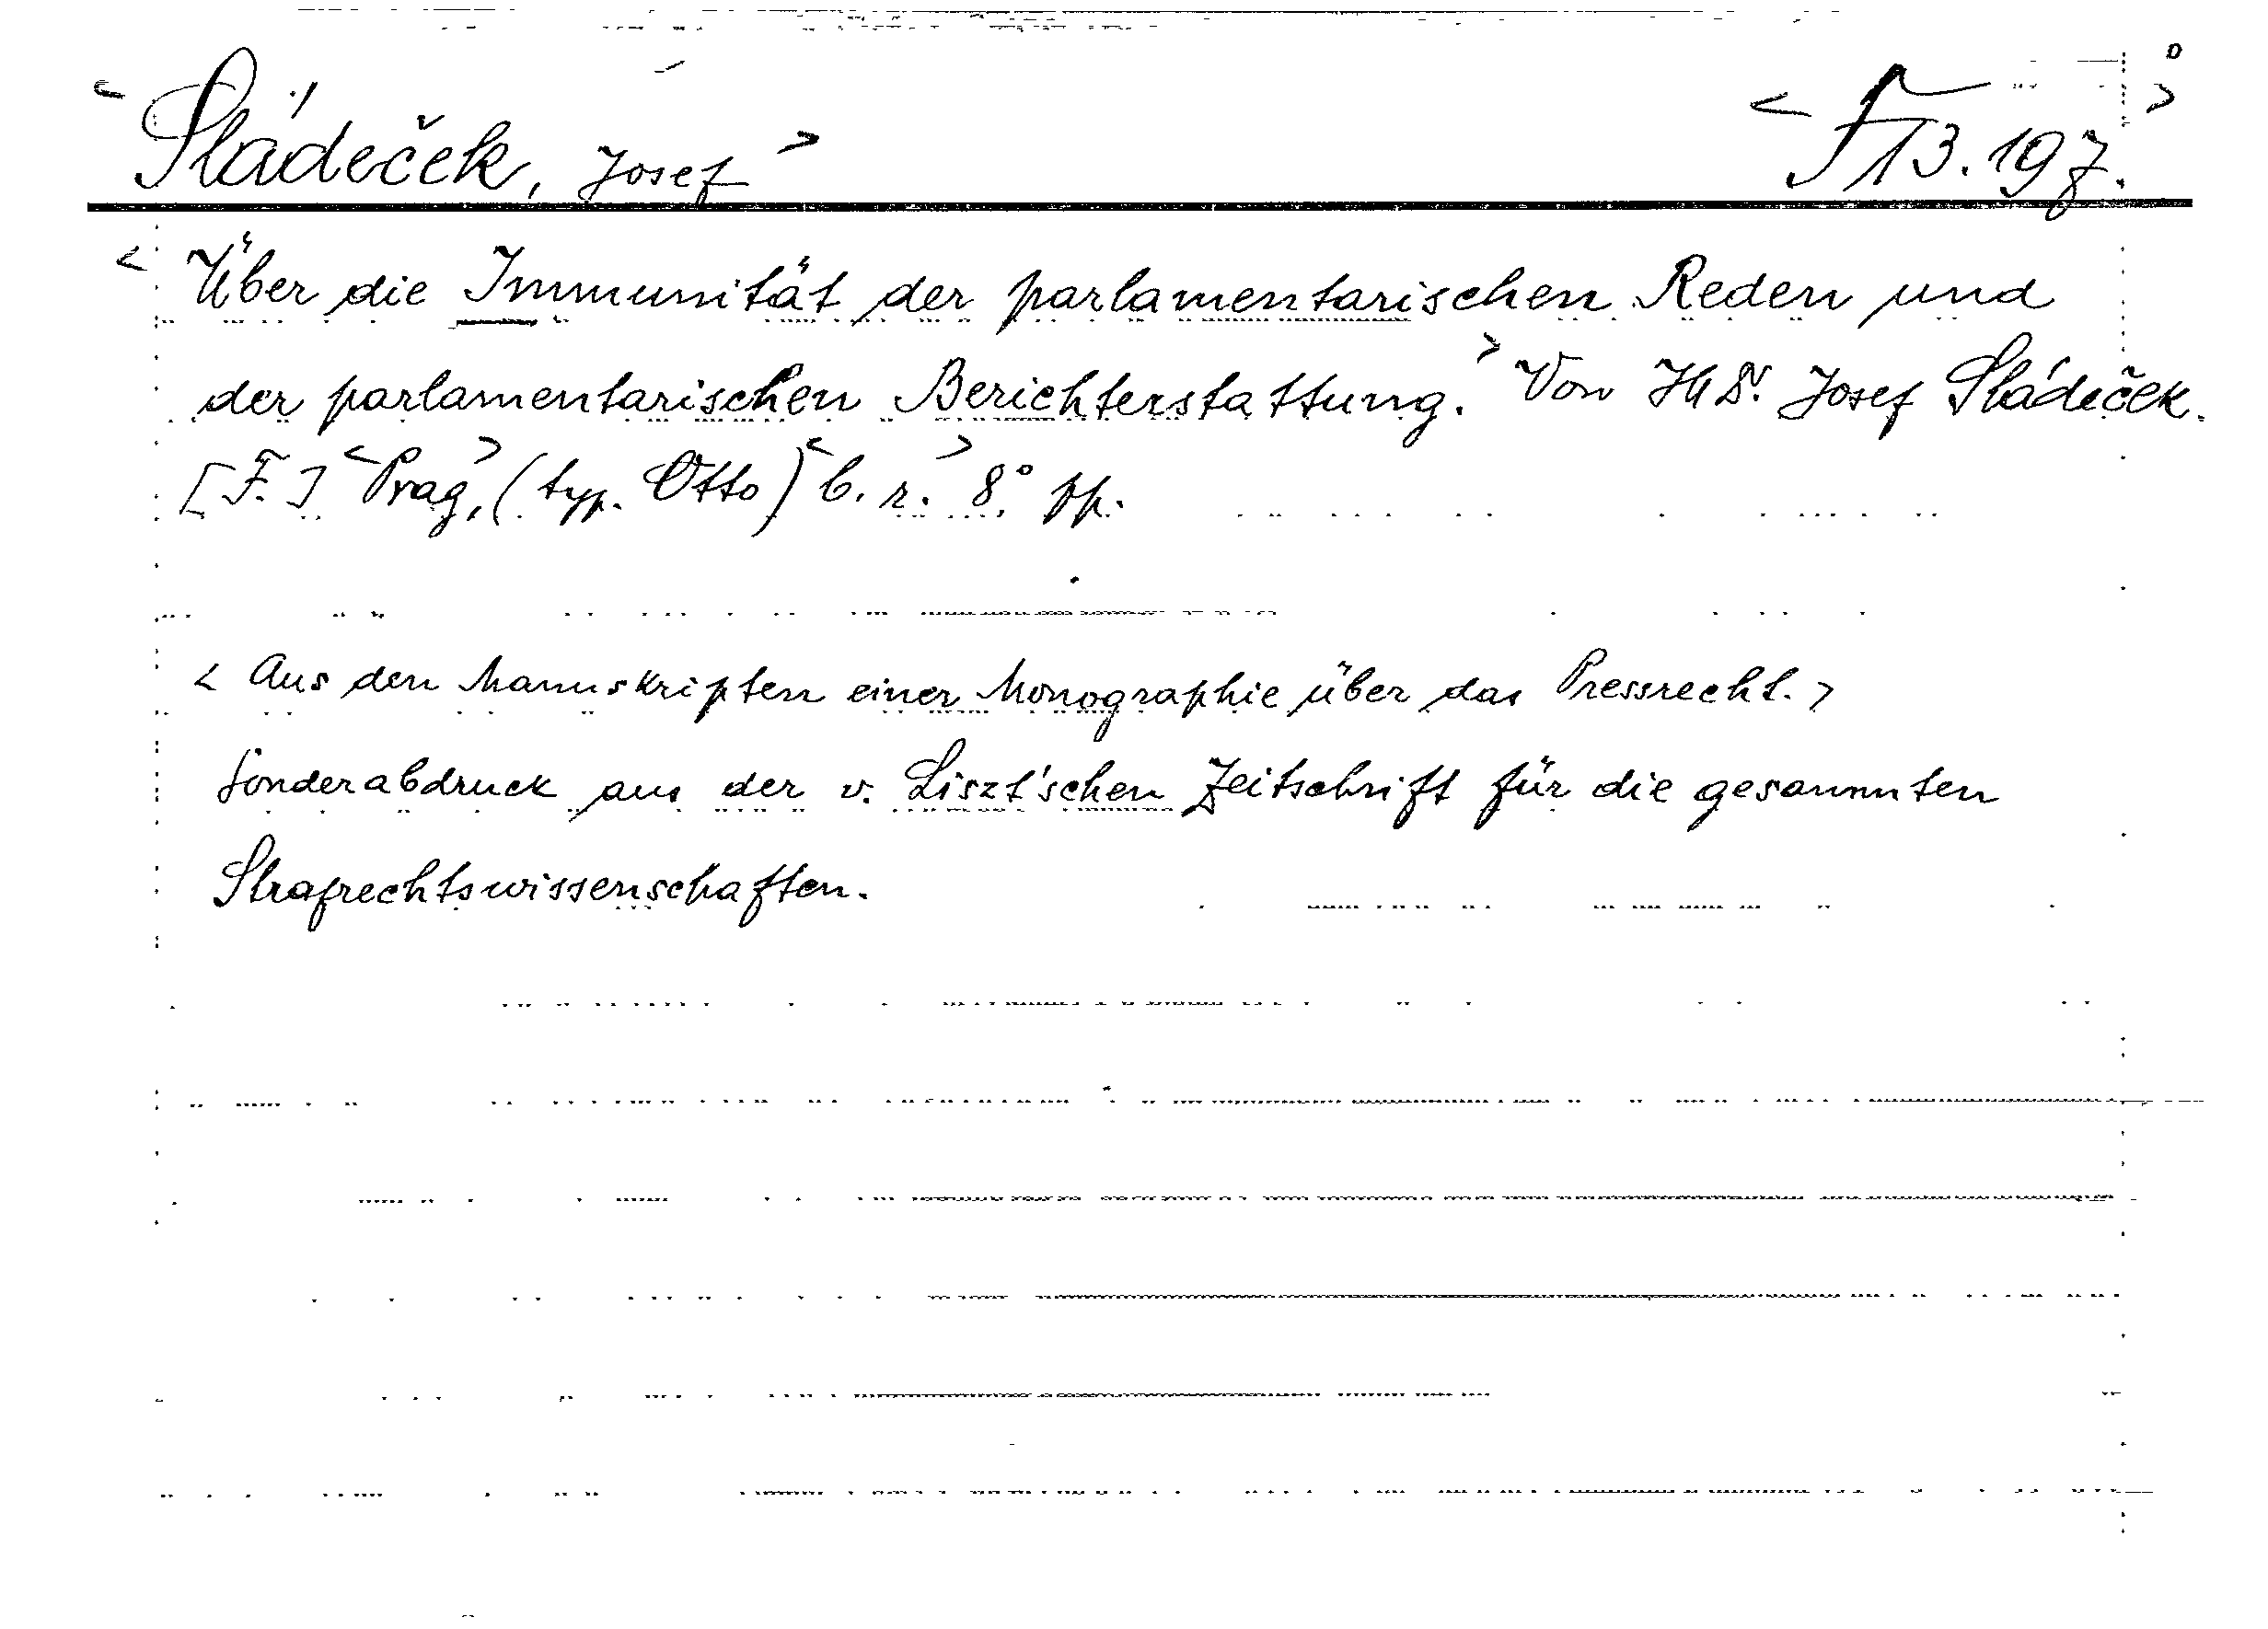 < Sládeček, Josef > < F 13.197. >
< Über die Immunität der parlamentarischen Reden und
der parlamentarischen Berichterstattung. > Von JUDr. Josef Sládeček.
[F.] < Prag, > (typ. Otto) < b. r. > 8° pp.
< Aus den Manuskripten einer Monographie über das Pressrecht. >
Sonderabdruck aus der v. Liszt'schen Zeitschrift für die gesammten
Strafrechtswissenschaften.